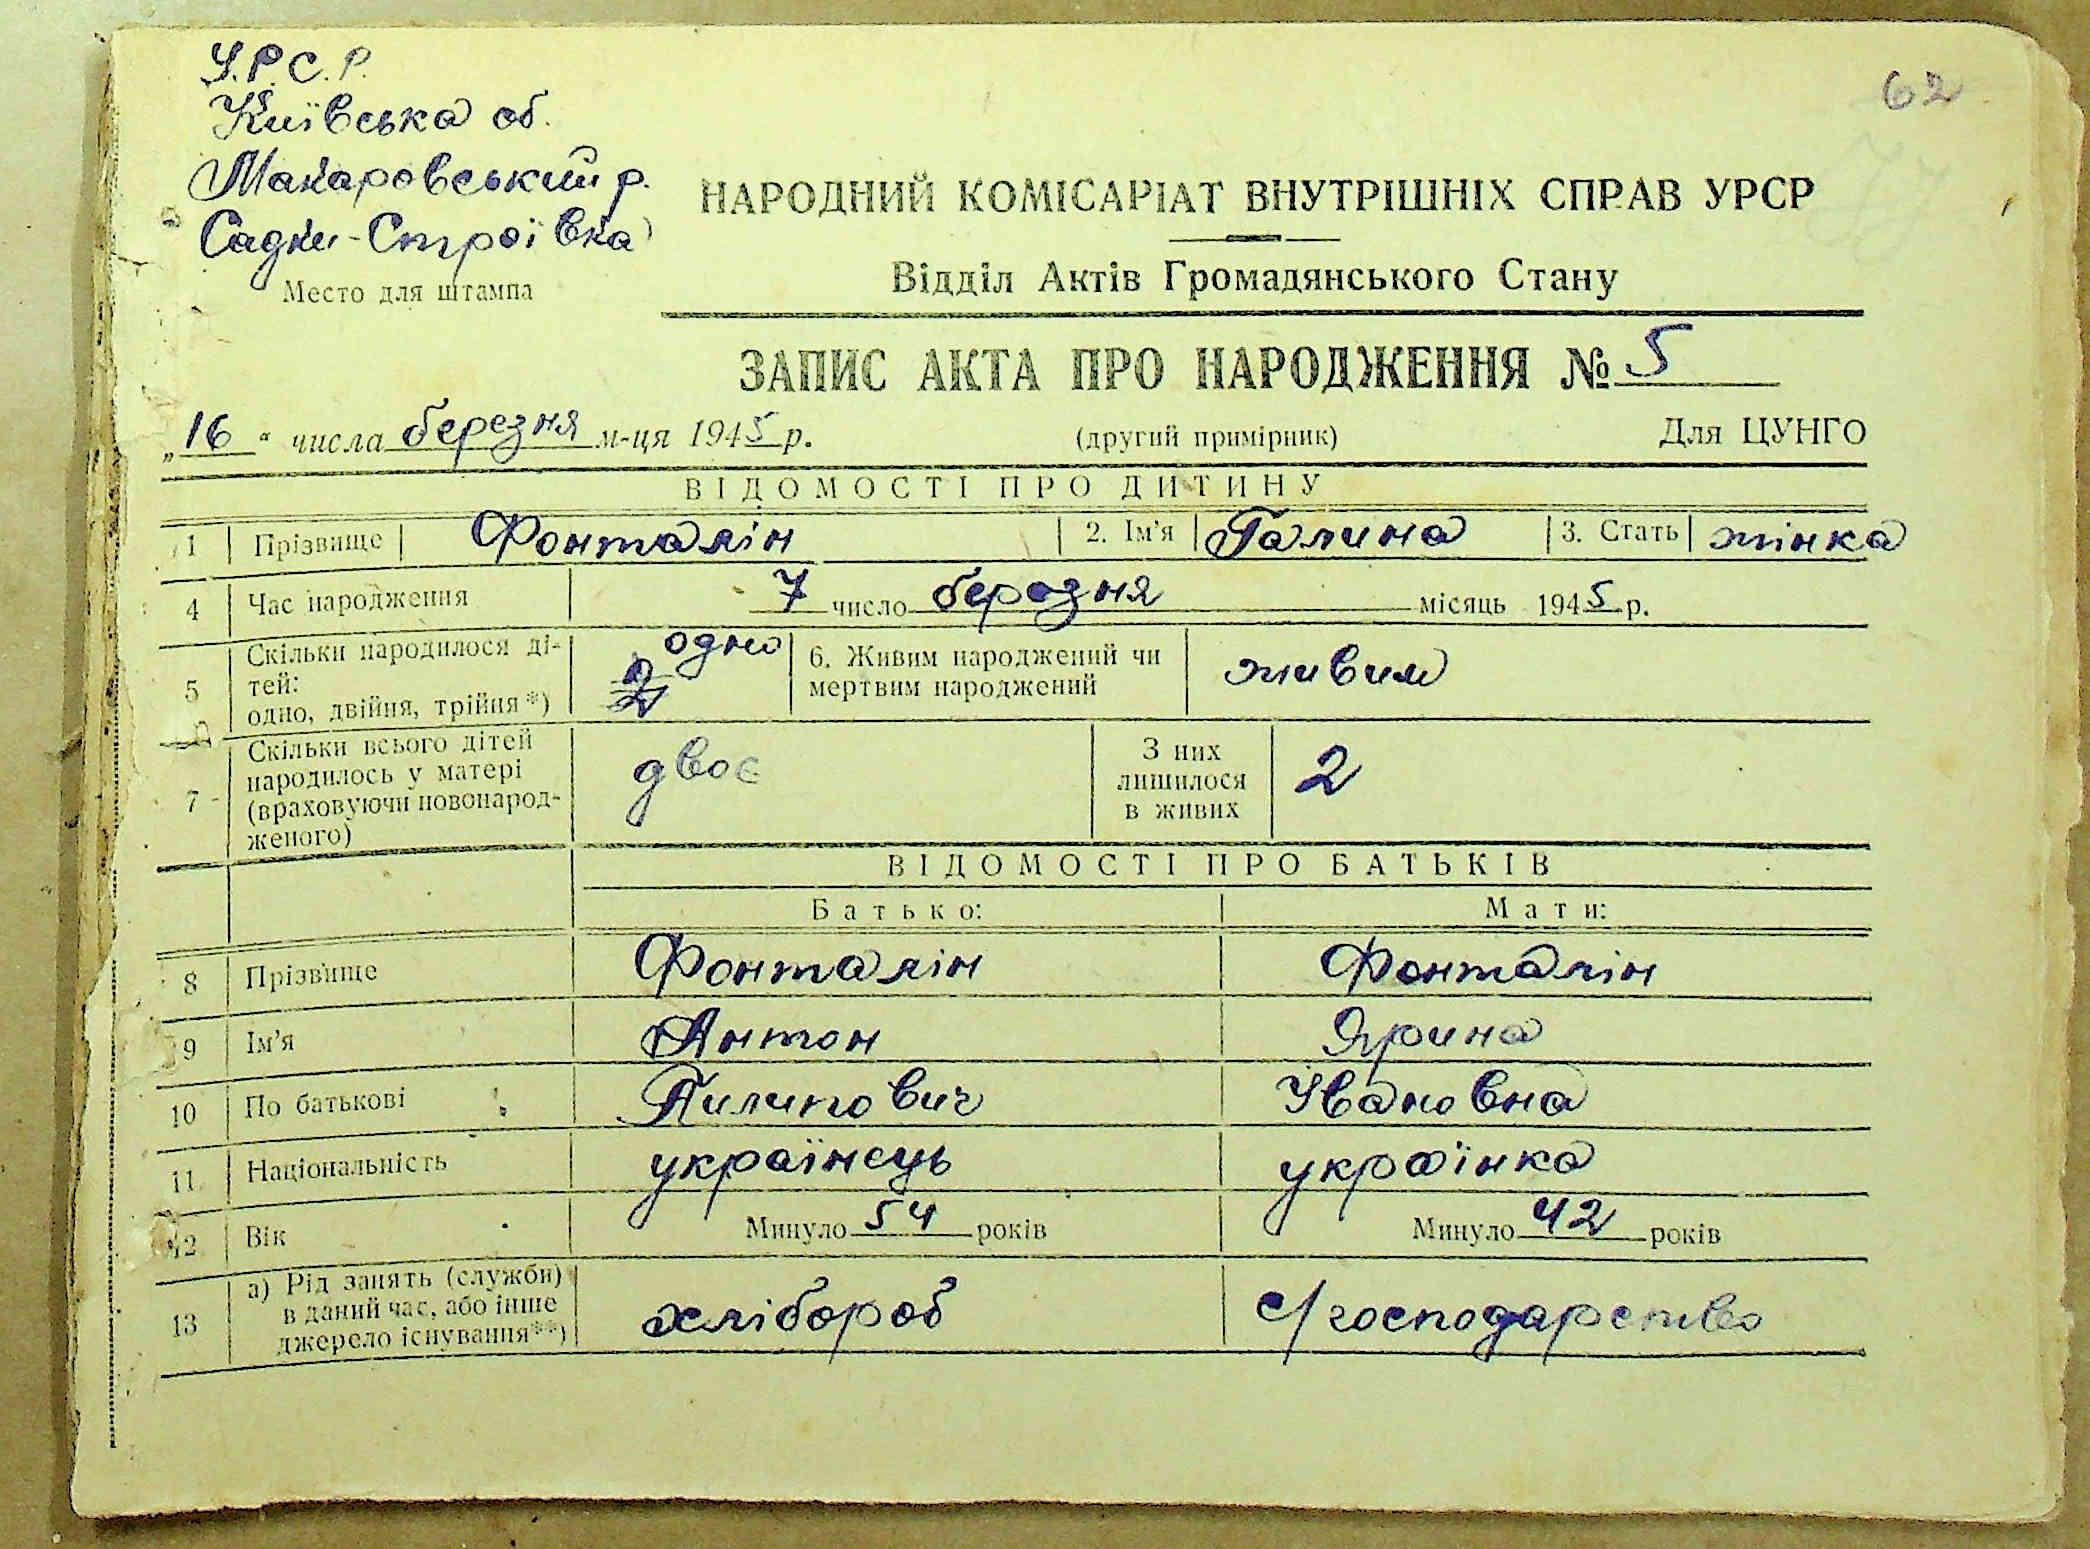 У.Р.С.Р.
Київська об.
Макаровський р.
Садки-Строївка
Место для штампа
62
НАРОДНИЙ КОМІСАРІАТ ВНУТРІШНІХ СПРАВ УРСР
Відділ Актів Громадянського Стану
ЗАПИС АКТА ПРО НАРОДЖЕННЯ № 5
„16“ числа березня м-ця 1945 р. (другий примірник) Для ЦУНГО
ВІДОМОСТІ ПРО ДИТИНУ
1 Прізвище Фонталін 2. Ім'я Галина 3. Стать жінка
4 Час народження 7 число березня місяць 1945 р.
5 Скільки народилося ді-
тей:
одно, двійня, трійня*)
одно
2
6. Живим народжений чи
мертвим народжений
живим
7 Скільки всього дітей
народилось у матері
(враховуючи новонарод-
женого)
двоє
З них
лишилося
в живих
2
ВІДОМОСТІ ПРО БАТЬКІВ
Батько: Мати:
8 Прізвище Фонталін Фонталін
9 Ім'я Антон Ярина
10 По батькові Пилипович Івановна
11 Національність українець українка
12 Вік Минуло 54 років Минуло 42 років
13 а) Рід занять (служби)
в даний час, або інше
джерело існування**)
хлібороб с/господарство